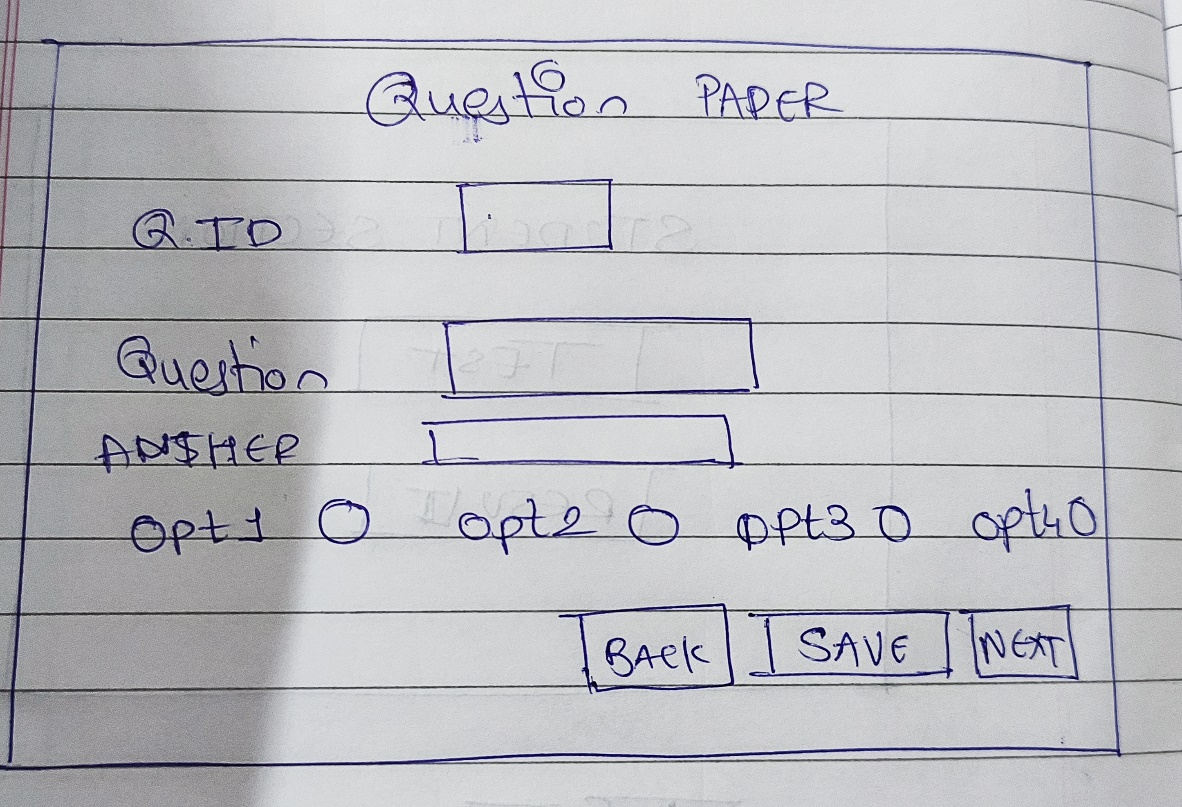 Question PAPER
Q.ID
Question
ANSWER
opt1 opt2 opt3 opt4
BACK SAVE NEXT